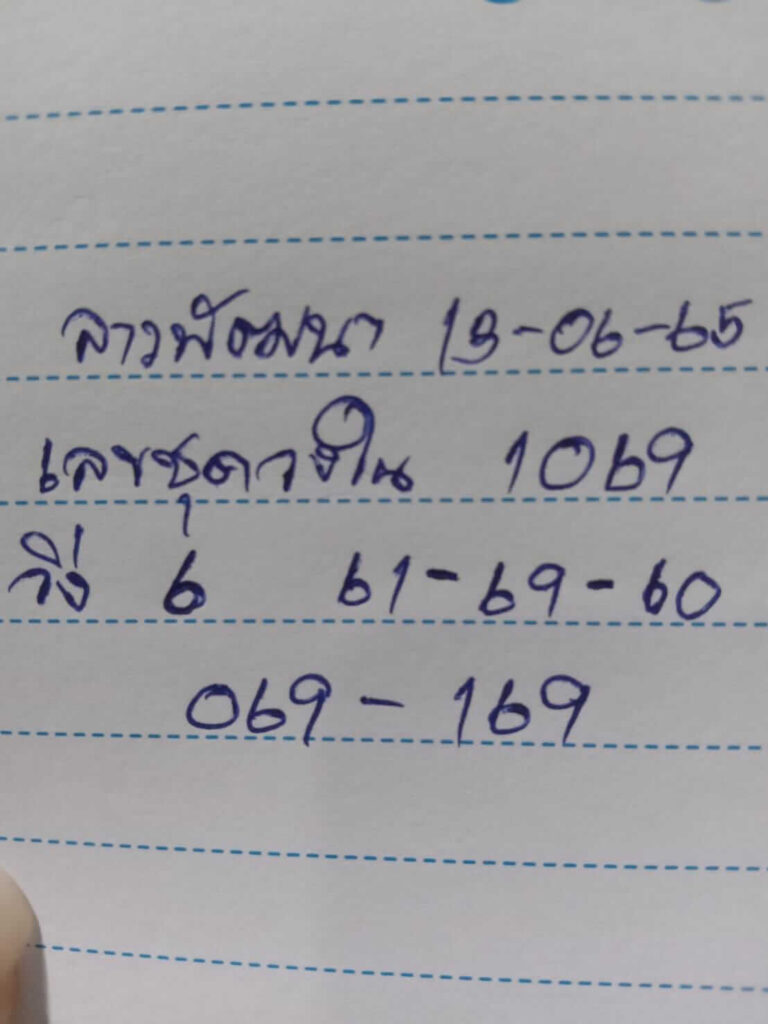 ลาวพัฒนา 13-06-65
เลขชุดวงใน 1069
วิ่ง 6 61-69-60
069-169